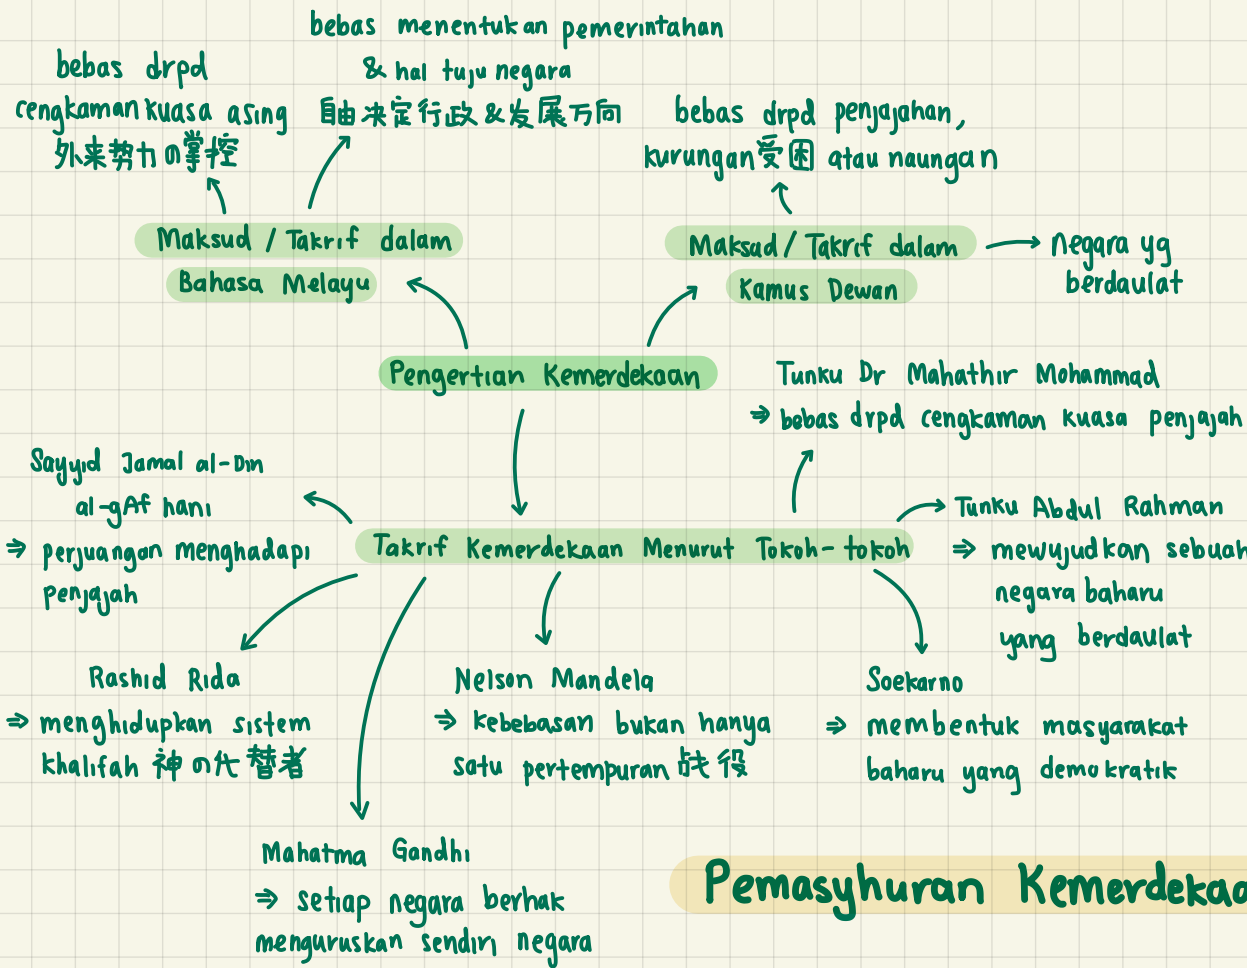 bebas menentukan pemerintahan
& hal tuju negara
自由决定行政&发展万向
bebas drpd
cengkaman kuasa asing
外来势力の掌控
bebas drpd penjajahan,
kurungan 受困 atau naungan
Maksud / Takrif dalam
Bahasa Melayu
Maksud / Takrif dalam
Kamus Dewan
negara yg
berdaulat
Pengertian Kemerdekaan
Tunku Dr Mahathir Mohammad
⇒ bebas drpd cengkaman kuasa penjajah
Sayyid Jamal al-Din
al-gAf hani
⇒ perjuangan menghadapi
penjajah
Takrif Kemerdekaan Menurut Tokoh-tokoh
Tunku Abdul Rahman
⇒ mewujudkan sebuah
negara baharu
yang berdaulat
Rashid Rida
⇒ menghidupkan sistem
khalifah 神の代替者
Nelson Mandela
⇒ kebebasan bukan hanya
satu pertempuran 战役
Soekarno
⇒ membentuk masyarakat
baharu yang demokratik
Mahatma Gandhi
⇒ setiap negara berhak
menguruskan sendiri negara
Pemasyhuran Kemerdekaa